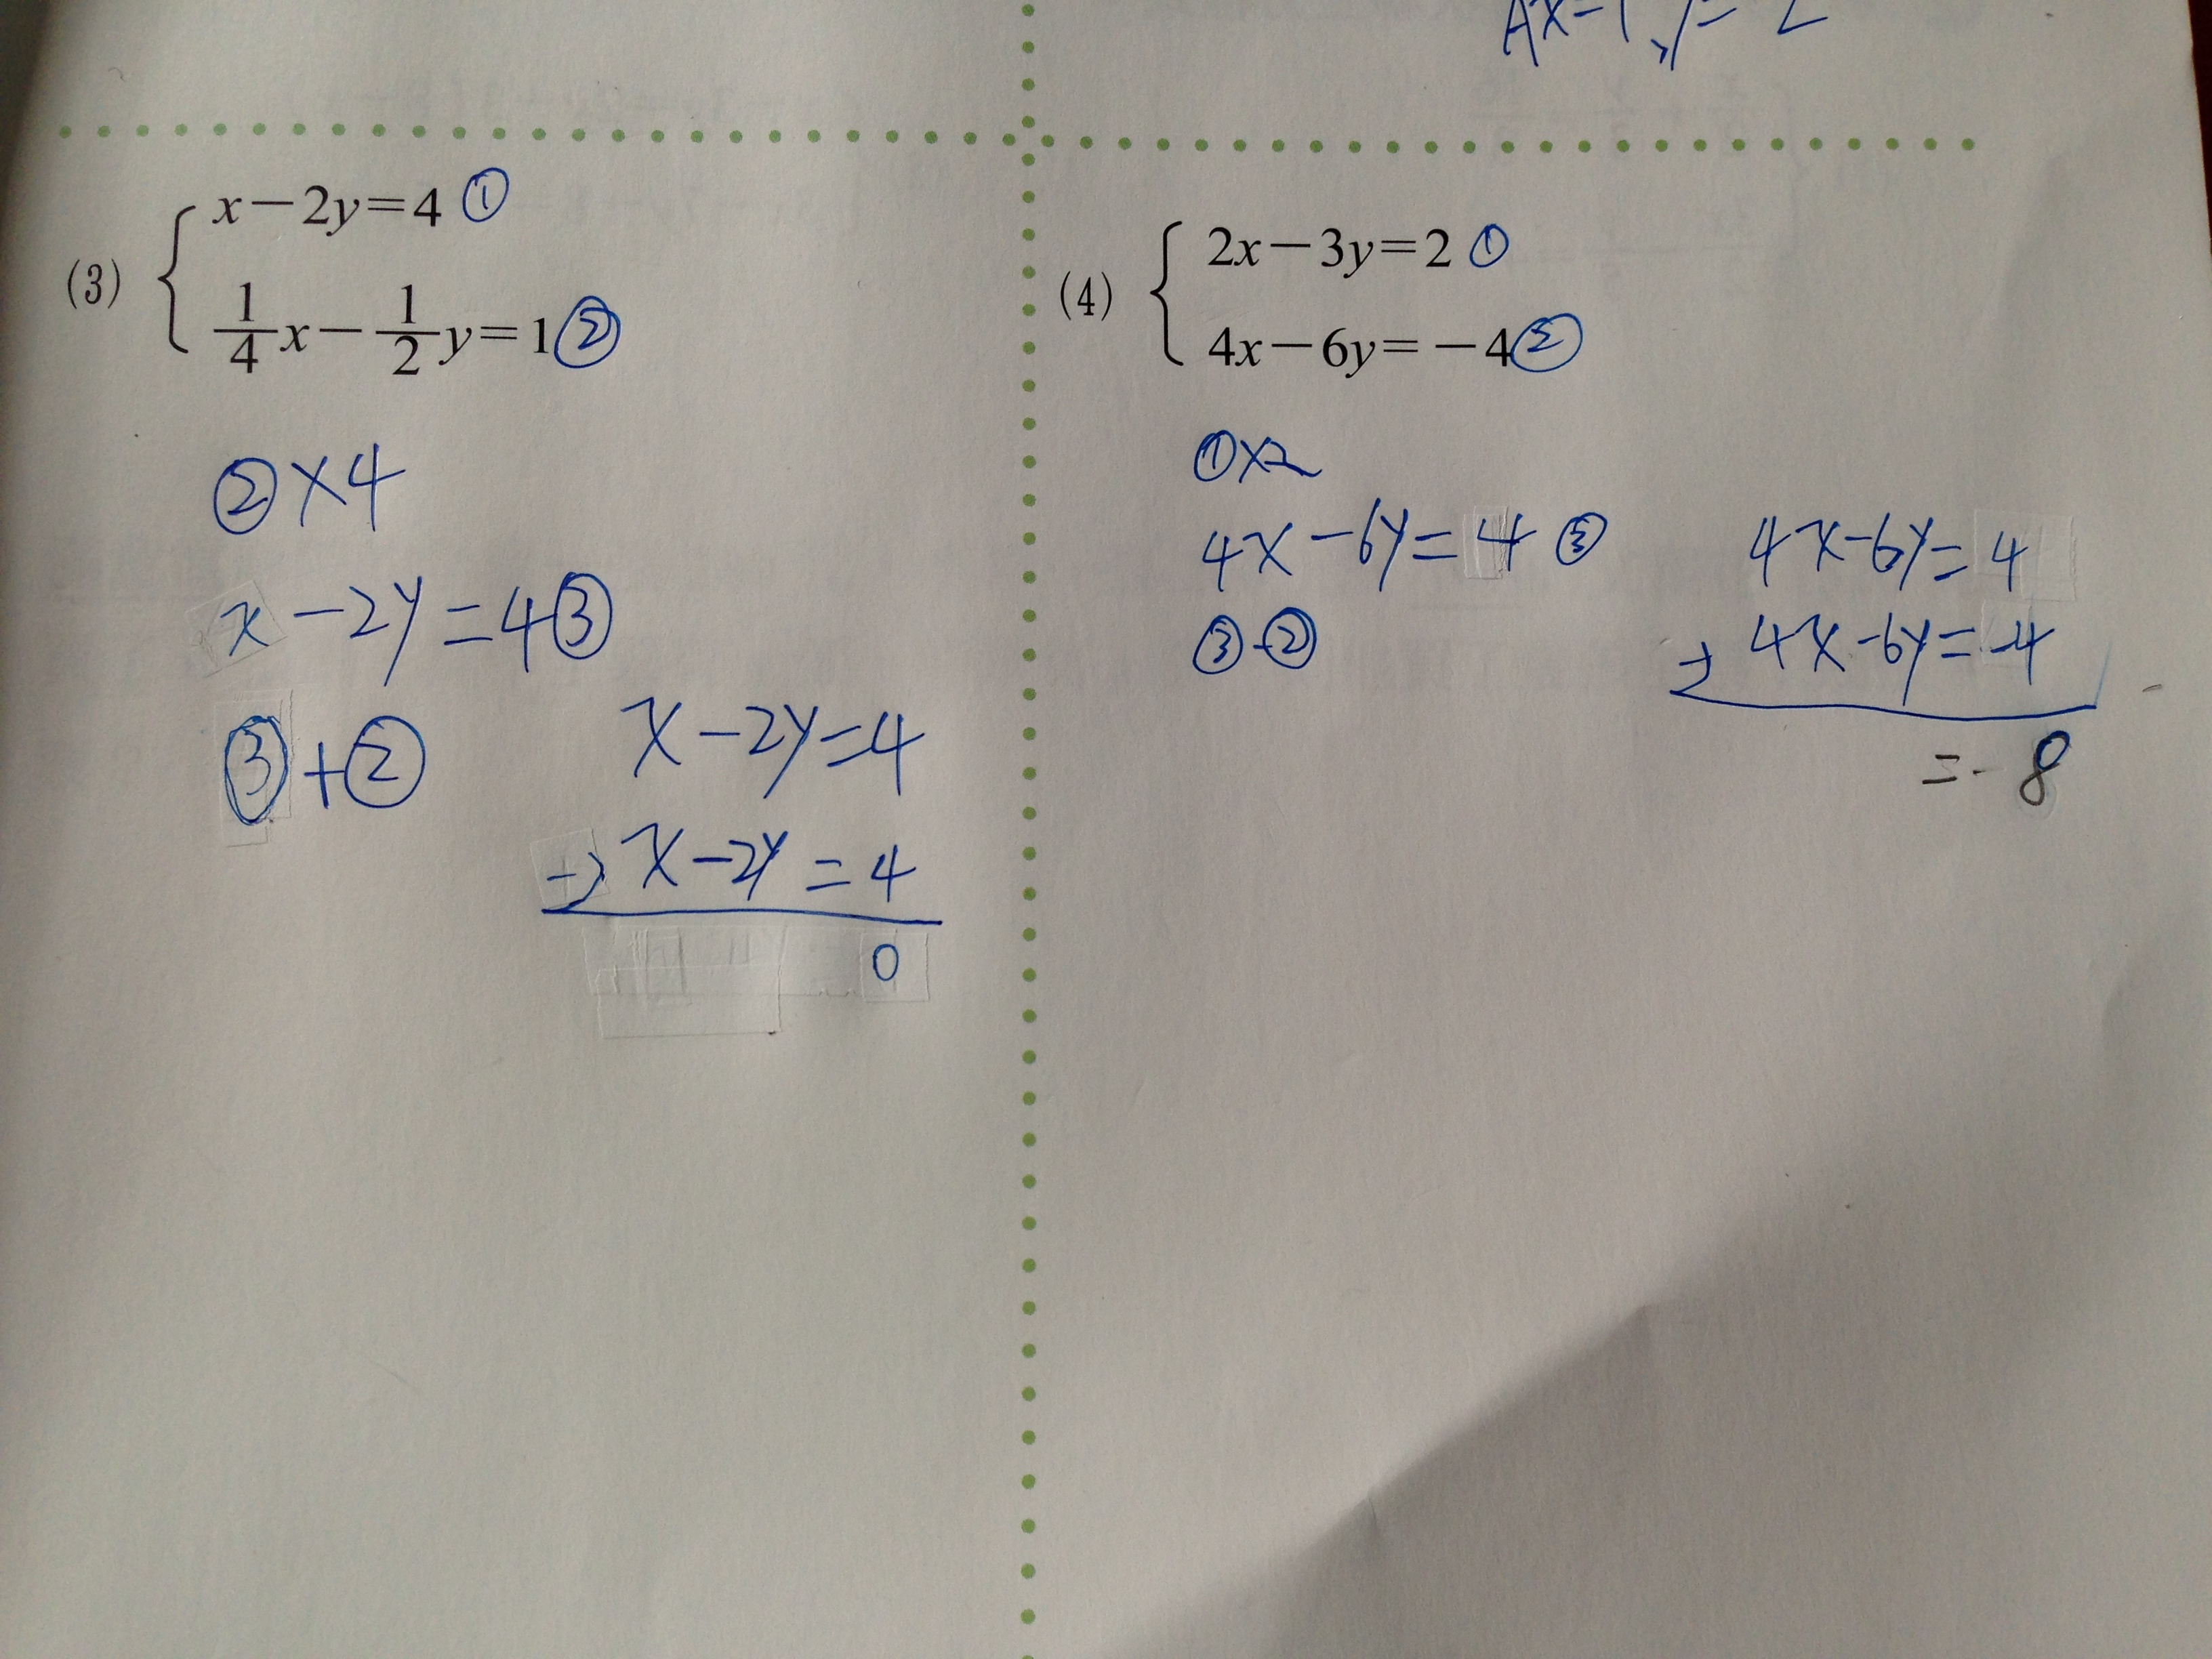 (3) { x－2y＝4 ①
1/4 x－1/2 y＝1 ②
②×4
x－2y＝4 ③
③＋②
x－2y＝4
－) x－2y＝4
0
(4) { 2x－3y＝2 ①
4x－6y＝－4 ②
①×2
4x－6y＝4 ③
③－②
4x－6y＝4
－) 4x－6y＝－4
＝－8